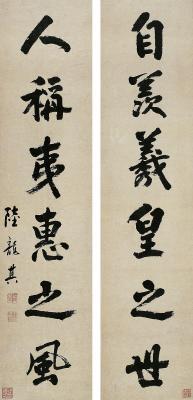 自羨羲皇之世
人稱夷惠之風
陸龍其